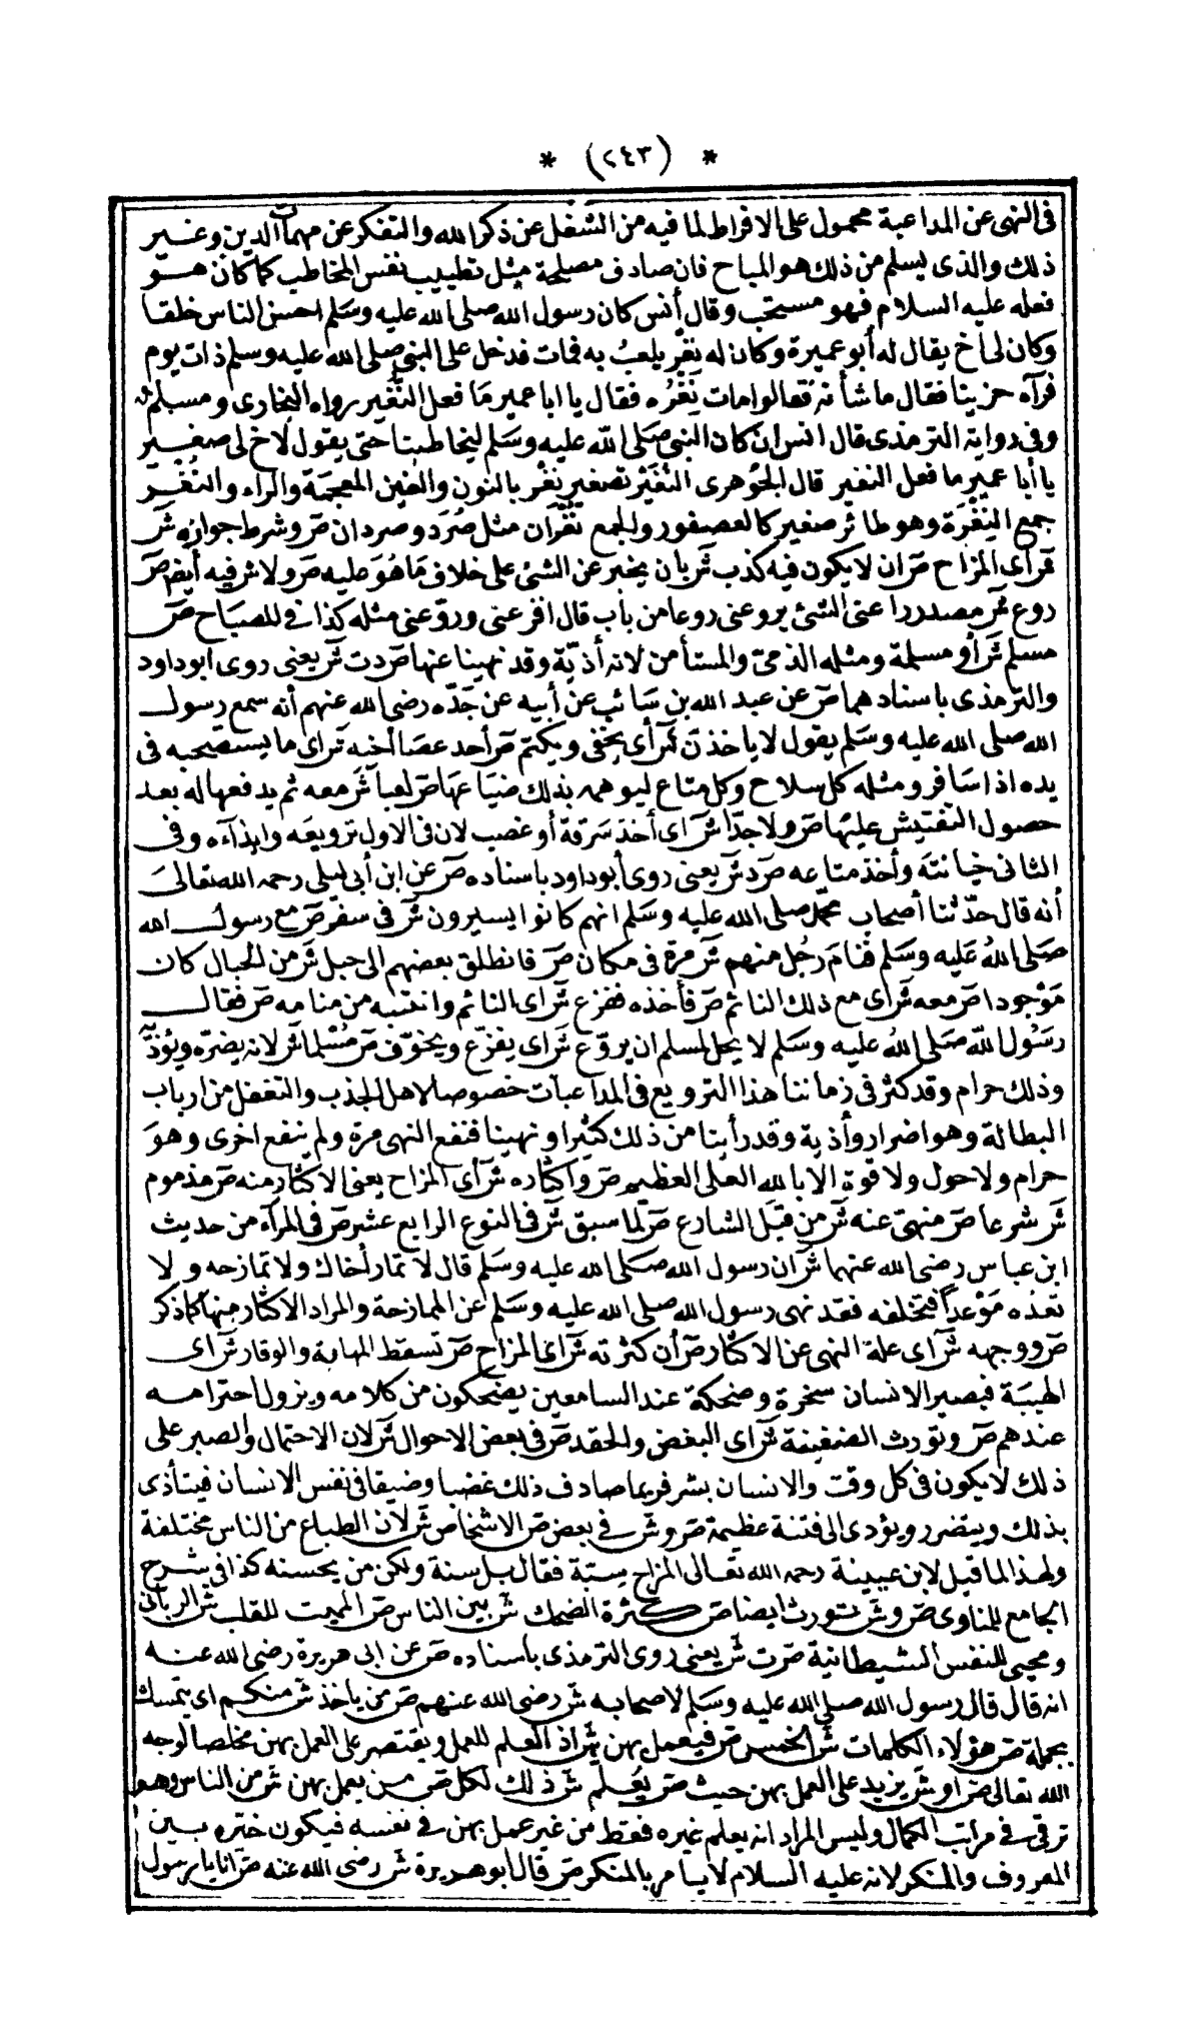 * (٢٤٣) *
فى النهى عن المداعبة محمول على الافراط لما فيه من الشغل عن ذكر الله والتفكر عن مهمات الدين وغير
ذلك والذى يسلم من ذلك هو المباح فان صادف مصلحة مثل تطييب نفس المخاطب كما كان هو
فعله عليه السلام فهو مستحب وقال أنس كان رسول الله صلى الله عليه وسلم احسن الناس خلقا
وكان لى اخ يقال له أبو عميرة وكان له نغر يلعب به فمات فدخل على النبى صلى الله عليه وسلم ذات يوم
فرآه حزينا فقال ما شأنه فقالوا مات نغره فقال يا ابا عمير ما فعل النغير رواه البخارى ومسلم
وفى رواية الترمذى قال انس ان كان النبى صلى الله عليه وسلم ليخاطبنا حتى يقول لاخ لى صغير
يا أبا عمير ما فعل النغير قال الجوهرى النغير تصغير نغر بالنون والغين المعجمة والراء والنغر
جمع النغرة وهو طائر صغير كالعصفور والجمع نغران مثل صرد وصردان ص وشرط جوازه ش
قر اى المزاح ص ان لا يكون فيه كذب ش بان يخبر عن الشئ على خلاف ما هو عليه ص ولا ش فيه أيضا ص
روع ش مصدر راعنى الشئ يروعنى روعا من باب قال افزعنى وروعنى مثله كذا فى المصباح ص
مسلم ش أو مسلمة ومثله الذمى والمستأمن لانه أذية وقد نهينا عنها ص دت ش يعنى روى ابو داود
والترمذى باسنادهما ص عن عبد الله بن سائب عن أبيه عن جده رضى الله عنهم أنه سمع رسول
الله صلى الله عليه وسلم يقول لا ياخذن ش أى يخفى ويكتم ص أحد عصا أخيه ش اى ما يستصحبه فى
يده اذا سافر ومثله كل سلاح وكل متاع ليوهمه بذلك ضياعها ص لعبا ش معه ثم يدفعها له بعد
حصول التفتيش عليها ص ولا جدا ش اى أخذ سرقة أو غصب لان فى الاول ترويعه وايذاءه وفى
الثانى خيانته وأخذ متاعه ص د ش يعنى روى أبو داود باسناده ص عن ابن أبى ليلى رحمه الله تعالى
أنه قال حدثنا أصحاب محمد صلى الله عليه وسلم انهم كانوا يسيرون ش فى سفر ص مع رسول الله
صلى الله عليه وسلم فنام رجل منهم ش مرة فى مكان ص فانطلق بعضهم الى حبل ش من الحبال كان
موجودا ص معه ش اى مع ذلك النائم ص فأخذه ففزع ش اى النائم وانتبه من منامه ص فقال
رسول الله صلى الله عليه وسلم لا يحل لمسلم ان يروع ش اى يفزع ويخوف ص مسلما ش لانه يضره ويؤذيه
وذلك حرام وقد كثر فى زماننا هذا الترويع فى المداعبات خصوصا لاهل الجذب والتغفل من ارباب
البطالة وهو اضرار وأذية وقد رأينا من ذلك كثيرا ونهينا فنفع النهى مرة ولم ينفع اخرى وهو
حرام ولا حول ولا قوة الا بالله العلى العظيم ص واكثاره ش أى المزاح يعنى الاكثار منه ص مذموم
ش شرعا ص منهى عنه ش من قبل الشارع ص لما سبق ش فى النوع الرابع عشر ص فى المرآء من حديث
ابن عباس رضى الله عنهما ش ان رسول الله صلى الله عليه وسلم قال لا تمار أخاك ولا تمازحه ولا
تعده موعدا فتخلفه فقد نهى رسول الله صلى الله عليه وسلم عن الممازحة والمراد الاكثار منها كما ذكر
ص ووجهه ش اى علة النهى عن الاكثار ص أن كثرته ش اى المزاح ص تسقط المهابة والوقار ش اى
الهيبة فيصير الانسان سخرة وضحكة عند السامعين يضحكون من كلامه ويزول احترامه
عندهم ص وتورث الضغينة ش اى البغض والحقد ص فى بعض الاحوال ش لان الاحتمال والصبر على
ذلك لا يكون فى كل وقت والانسان بشر فربما صادف ذلك غضبا وضيقا فى نفس الانسان فيتأذى
بذلك ويتضرر ويؤدى الى فتنة عظيمة ص و ش فى بعض ص الاشخاص ش لان الطباع من الناس مختلفة
ولهذا لما قيل لابن عيينة رحمه الله تعالى المزاح سبة فقال بل سنة ولكن من يحسنه كذا فى شرح
الجامع للمناوى ص و ش تورث ايضا ص كثرة الضحك ش بين الناس ص المميت للقلب ش الربانى
ومحيى للنفس الشيطانية ص ت ش يعنى روى الترمذى باسناده ص عن ابى هريرة رضى الله عنه
انه قال قال رسول الله صلى الله عليه وسلم لاصحابه ش رضى الله عنهم ص من ياخذ ش منكم اى يتمسك
بجملة ص هؤلاء الكلمات ش الخمس ص فيعمل بهن ش اذ العلم للعمل ويقتصر على العمل بهن مخلصا لوجه
الله تعالى ص او ش يزيد على العمل بهن حيث ص يعلم ش ذلك لكل ص من يعمل بهن ش من الناس وهو
ترقى فى مراتب الكمال وليس المراد انه يعلم غيره فقط من غير عمل بهن فى نفسه فيكون خيره بين
المعروف والمنكر لانه عليه السلام لا يامر بالمنكر ص قال ابو هريرة ش رضى الله عنه ص انا يا رسول